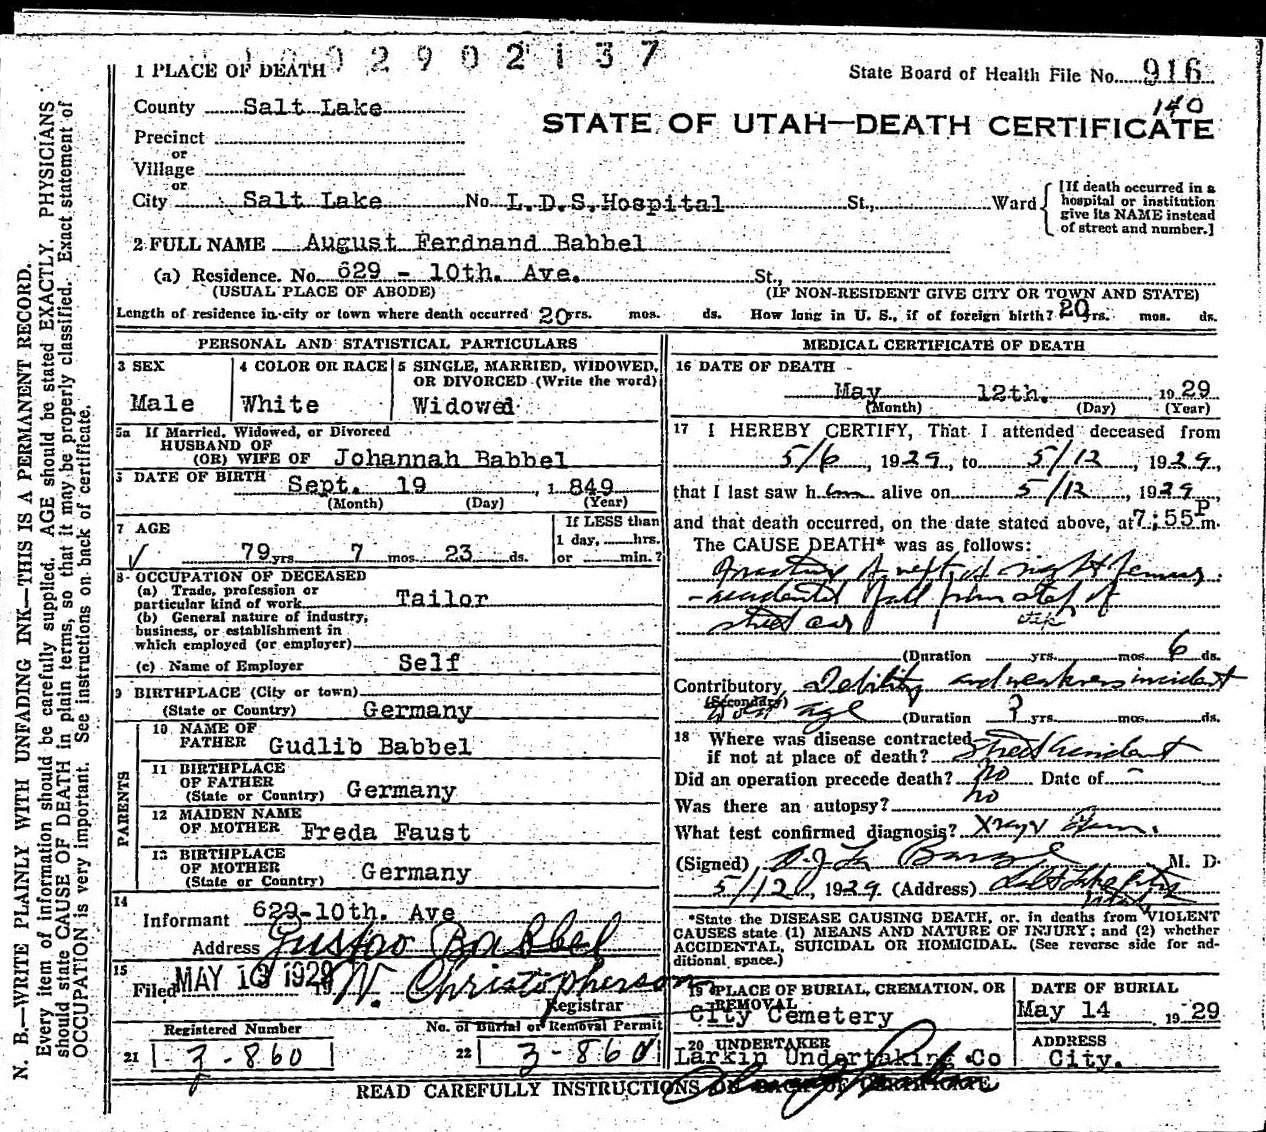 02902137
1 PLACE OF DEATH
State Board of Health File No. 916
140
County Salt Lake
STATE OF UTAH—DEATH CERTIFICATE
Precinct
or
Village
or
City Salt Lake No. L.D.S. Hospital St., Ward
[If death occurred in a hospital or institution give its NAME instead of street and number.]
2 FULL NAME August Ferdnand Babbel
(a) Residence. No. 629 - 10th. Ave. St.,
(USUAL PLACE OF ABODE) (IF NON-RESIDENT GIVE CITY OR TOWN AND STATE)
Length of residence in city or town where death occurred 20 yrs. mos. ds. How long in U. S., if of foreign birth? 20 yrs. mos. ds.
PERSONAL AND STATISTICAL PARTICULARS
3 SEX
Male
4 COLOR OR RACE
White
5 SINGLE, MARRIED, WIDOWED,
OR DIVORCED (Write the word)
Widowed
5a If Married, Widowed, or Divorced
HUSBAND OF
(OR) WIFE OF Johannah Babbel
DATE OF BIRTH Sept. 19, 1849
(Month) (Day) (Year)
7 AGE
79 yrs 7 mos. 23 ds.
If LESS than
1 day, hrs.
or min.?
8 OCCUPATION OF DECEASED
(a) Trade, profession or
particular kind of work Tailor
(b) General nature of industry,
business, or establishment in
which employed (or employer)
(c) Name of Employer Self
9 BIRTHPLACE (City or town)
(State or Country) Germany
PARENTS
10 NAME OF
FATHER Gudlib Babbel
11 BIRTHPLACE
OF FATHER
(State or Country) Germany
12 MAIDEN NAME
OF MOTHER Freda Faust
13 BIRTHPLACE
OF MOTHER
(State or Country) Germany
14
Informant 629-10th. Ave
Address Gustav Babbel
15
Filed MAY 13 1929 W. Christopherson
Registrar
Registered Number
21 3-860
No. of Burial or Removal Permit
22 3-860
MEDICAL CERTIFICATE OF DEATH
16 DATE OF DEATH
May 12th. , 1929
(Month) (Day) (Year)
17 I HEREBY CERTIFY, That I attended deceased from
5/6, 1929, to 5/12, 1929,
that I last saw him alive on 5/12, 1929,
and that death occurred, on the date stated above, at 7:55 P m.
The CAUSE DEATH* was as follows:
Fracture of neck of right femur.
- accidental fall from step of
street car step
(Duration yrs. mos. 6 ds.
Contributory Debility and weakness incident
(Secondary) to old age (Duration ? yrs. mos. ds.
18 Where was disease contracted
if not at place of death? Street Accident
Did an operation precede death? no Date of -
Was there an autopsy? no
What test confirmed diagnosis? Xray
(Signed) M. D.
5/12, 1929 (Address) Salt Lake City
Utah
*State the DISEASE CAUSING DEATH, or, in deaths from VIOLENT
CAUSES state (1) MEANS AND NATURE OF INJURY; and (2) whether
ACCIDENTAL, SUICIDAL OR HOMICIDAL. (See reverse side for ad-
ditional space.)
19 PLACE OF BURIAL, CREMATION, OR
REMOVAL
City Cemetery
DATE OF BURIAL
May 14 1929
20 UNDERTAKER
Larkin Undertaking Co
ADDRESS
City.
READ CAREFULLY INSTRUCTIONS ON BACK OF CERTIFICATE
N. B.—WRITE PLAINLY WITH UNFADING INK—THIS IS A PERMANENT RECORD.
Every item of information should be carefully supplied. AGE should be stated EXACTLY. PHYSICIANS
should state CAUSE OF DEATH in plain terms, so that it may be properly classified. Exact statement of
OCCUPATION is very important. See instructions on back of certificate.